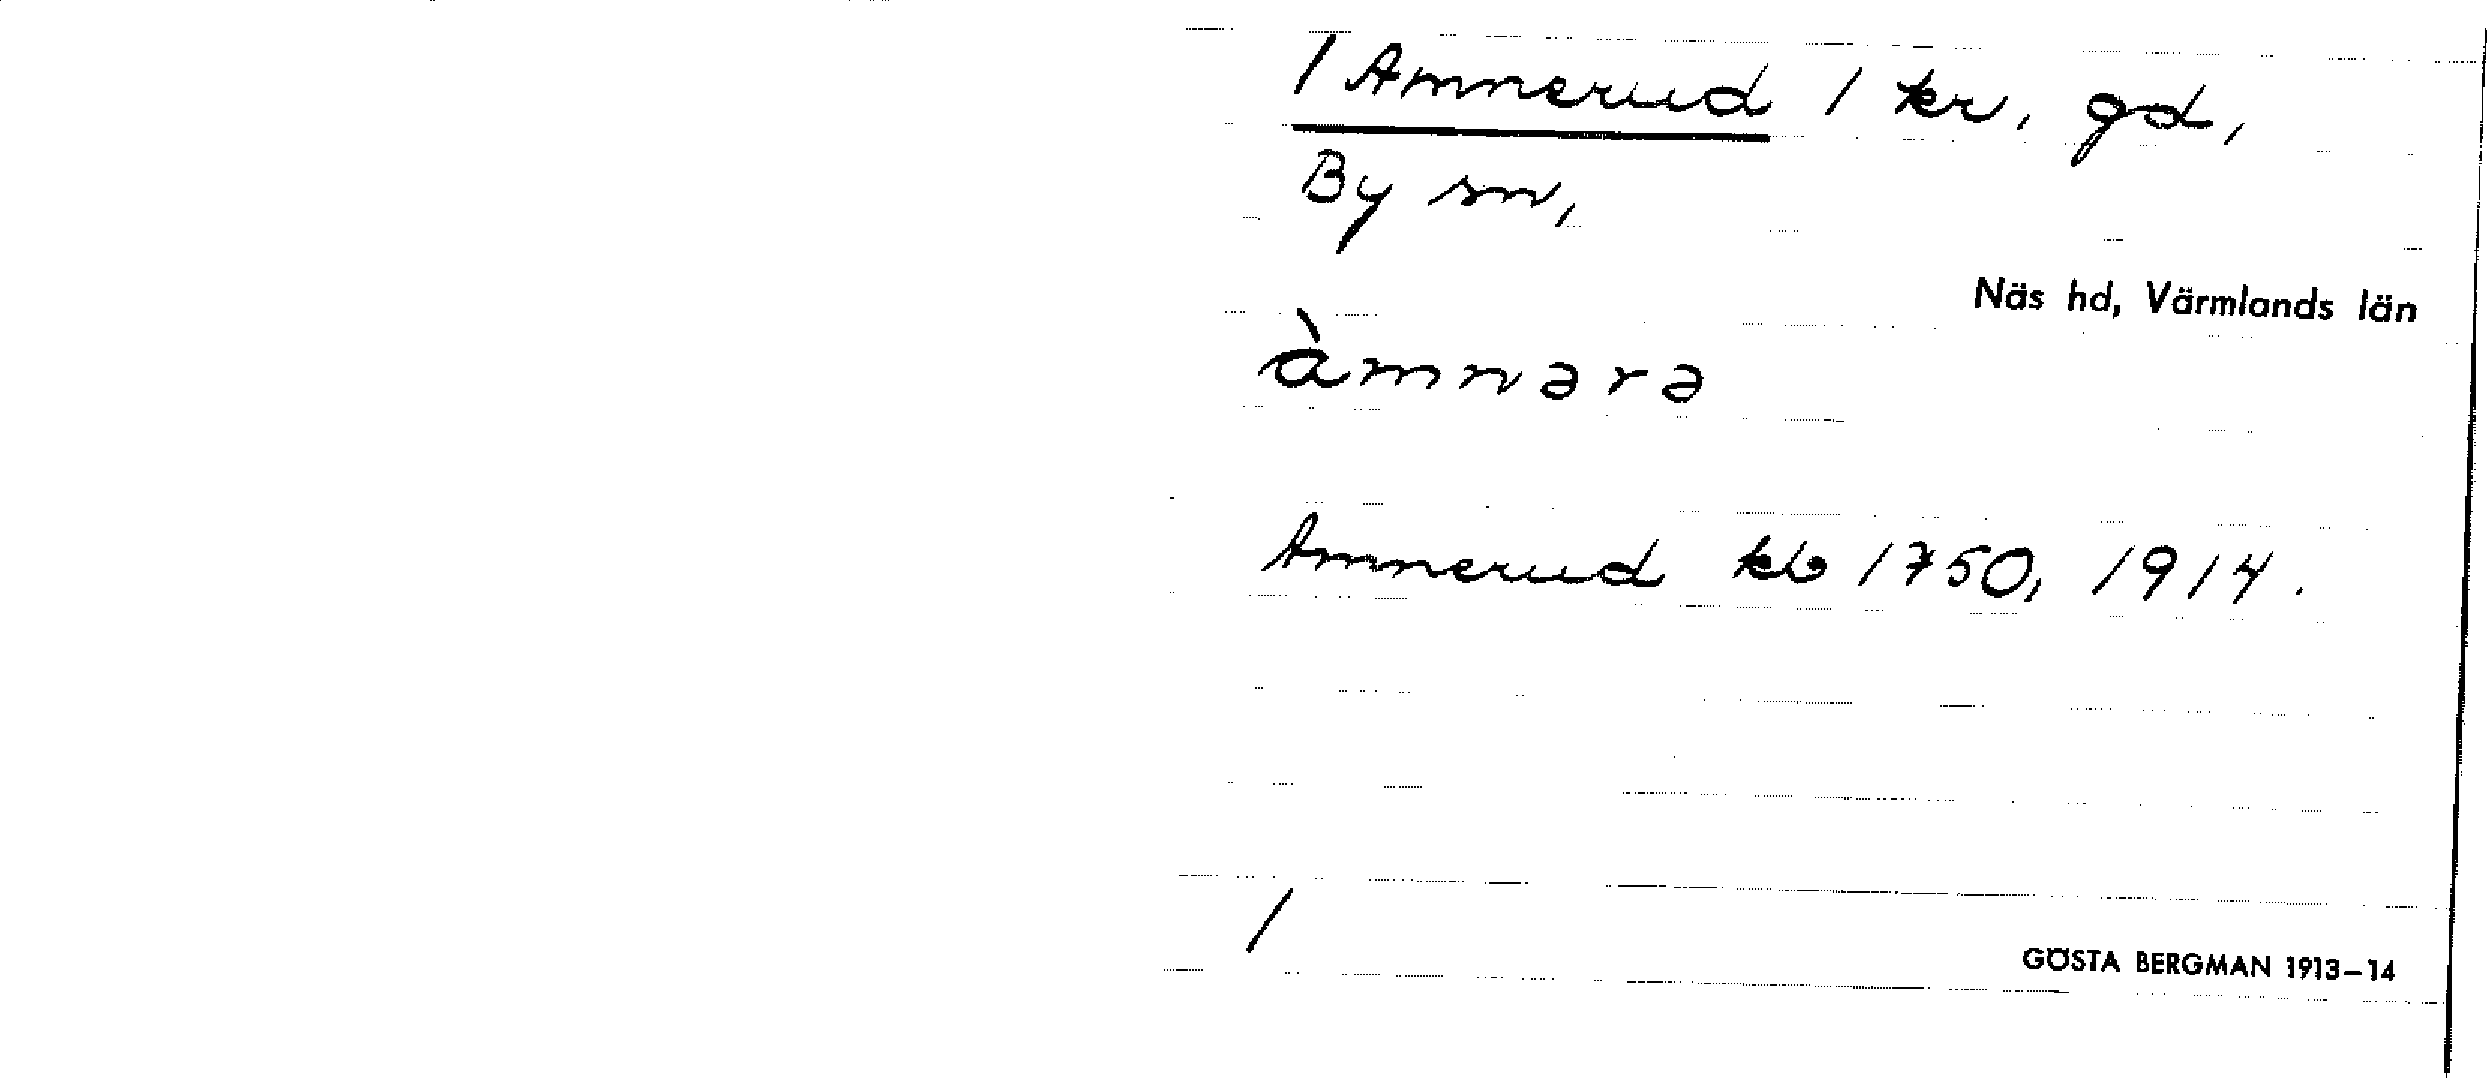 / Amnerud / kr. gd,
By sn,
Näs hd, Värmlands län
àmnərə
Amnerud kb 1750, 1914.
/
GÖSTA BERGMAN 1913–14